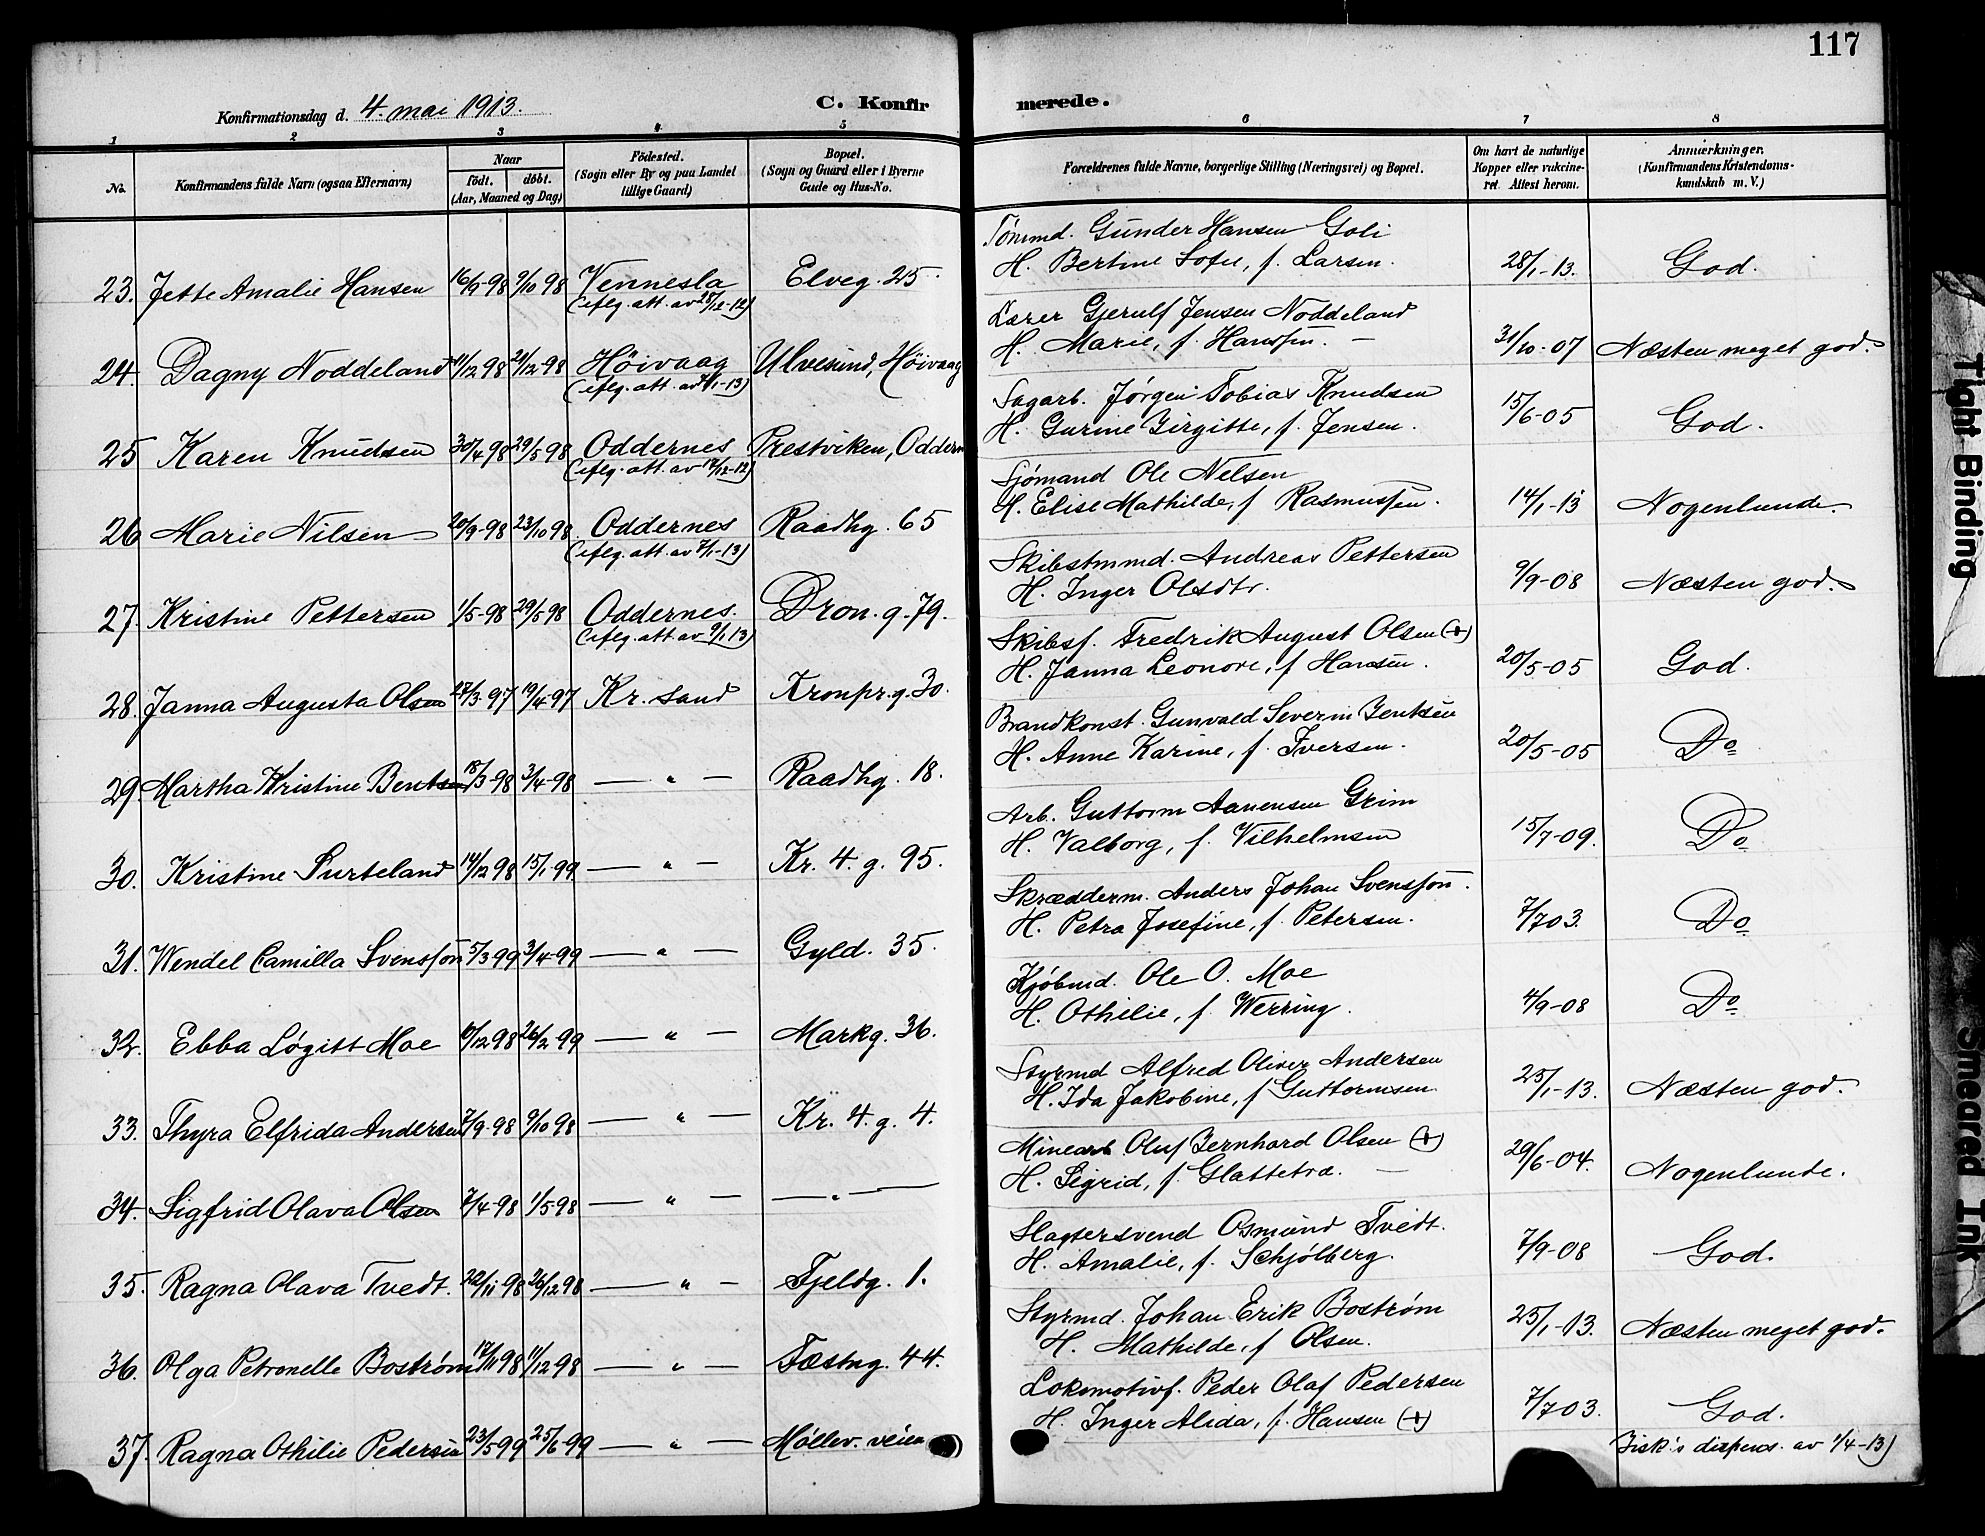 117
Konfirmationsdag d. 4. mai 1913.
C. Konfirmerede.
1 2 3 4 5 6 7 8
No.
Konfirmandens fulde Navn (ogsaa Efternavn)
Naar
født. døbt.
(Aar, Maaned og Dag)
Födested.
(Sogn eller By og paa Landet
tillige Gaard)
Bopæl.
(Sogn og Gaard eller i Byerne
Gade og Hus-No.
Forældrenes fulde Navne, borgerlige Stilling (Næringsvei) og Bopæl.
Om havt de naturlige
Kopper eller vakcine-
ret. Attest herom.
Anmærkninger.
(Konfirmandens Kristendoms-
kundskab m. V.)
Tømmd. Gunder Hansen Goli
23. Jette Amalie Hansen 16/9-98 9/10 98 Vennesla Elveg. 25. H. Bertine Sofie, f. Larsen. 28/1-13. God.
(iflg. att. av 28/12-12)
Lærer Gjerulf Jensen Noddeland
24. Dagny Noddeland 11/12 98 21/12-98 Høivaag Ulvesund, Høivaag H. Marie, f. Hanssen. — 31/10-07 Næsten meget god.
(iflg. att. av 4/1-13)
Sagarb. Jørgen Tobias Knudsen
25 Karen Knudsen 30/4-98 29/5-98 Oddernes Prestviken, Oddern H. Gurine Birgitte, f. Jensen. 15/6-05 God.
(iflg. att. av 17/12-12)
Sjømand Ole Nelsen
26 Marie Nilsen 20/9-98 23/10 98 Oddernes Raadhg. 65 H. Elise Mathilde, f Rasmussen. 14/1-13 Nogenlunde.
(iflg. att. av 7/1-13)
Skibstmmd. Andreas Pettersen
27. Kristine Pettersen 1/5-98 29/5 98 Oddernes. Dron. g. 79. H. Inger Olsdtr. 9/9-08 Næsten god.
(iflg. att. av 9/1 13)
Skibsf. Fredrik August Olsen (+)
28. Janna Augusta Olsen 27/3-97 19/4-97 Kr. sand Kronpr. g. 30. H. Janna Leonore, f Hansen. 20/5-05 God.
Brandkonst. Gunvald Severin Bentsen
29. Martha Kristine Bentsen 18/3-98 3/4-98 — " — Raadhg. 18. H. Anne Karine, f. Iversen. 20/5-05 Do
Arb. Guttorm Aanensen Grim
30. Kristine Surteland 14/12 98 15/1-99 — " — Kr. 4. g. 95. H. Valborg, f. Vilhelmsen 15/7-09. Do
Skrædderm. Anders Johan Svensson.
31. Wendel Camilla Svensson 5/3 99 3/4-99 — " — Gyld. 35. H. Petra Josefine, f. Petersen. 7/7 03. Do
Kjøbmd. Ole O. Moe
32. Ebba Løgitt Moe 10/12 98 26/2 99 — " — Markg. 36. H. Othilie, f. Werring. 4/9-08 Do
Styrmd Alfred Oliver Andersen
33. Thyra Elfrida Andersen 7/9-98 9/10 98 — " — Kr. 4. g. 4. H. Ida Jakobine, f Guttormsen. 25/1-13. Næsten god.
Minearb. Oluf Bernhard Olsen (+)
34. Sigfrid Olava Olsen 7/4-98 1/5-98 — " — — " — H. Sigrid, f. Glattetræ. — 29/6-04. Nogenlunde.
Slagtersvend Osmund Tvedt.
35. Ragna Olava Tvedt. 22/11 98 26/12 98 — " — Fjeldg. 1. H. Amalie, f. Schjölberg. 7/9-08 God.
Styrmd. Johan Erik Boström
36. Olga Petronelle Boström 17/11 98 11/12 98 — " — Fæstng. 44. H. Mathilde, f Olsen. 25/1-13. Næsten meget god.
Lokomotivf. Peder Olaf Pedersen
37. Ragna Othilie Pedersen 23/5 99 25/6-99 — " — Møllev. veien H. Inger Alida, f. Hansen (+) 7/7 03. God.
Bisk's dispens. av 1/4-13)
Tight Binding
Smeared Ink